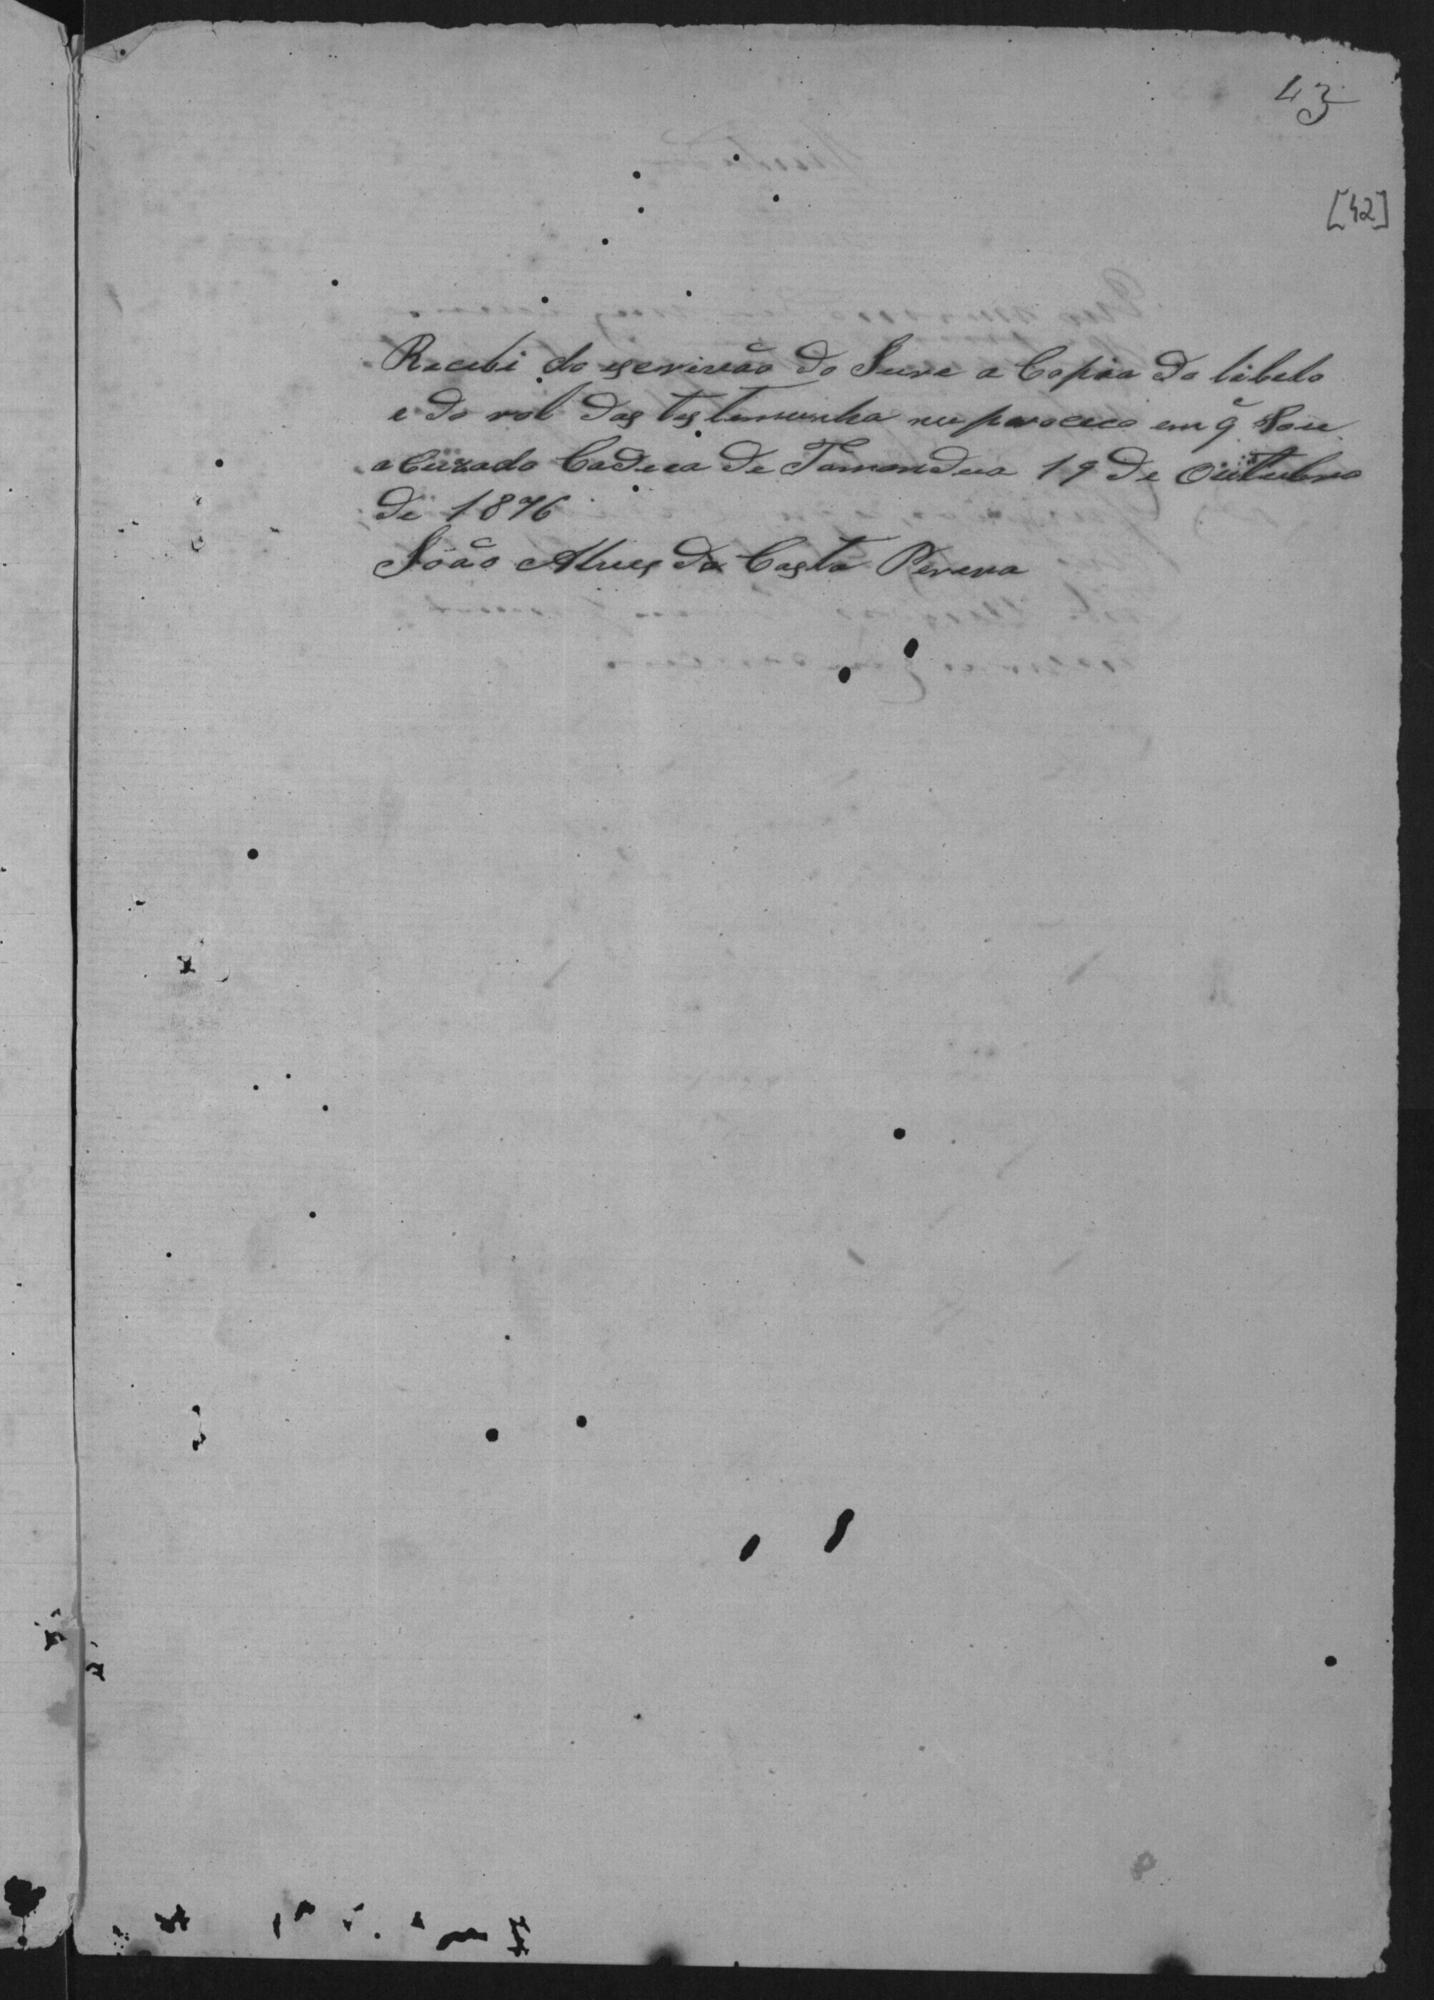 43
[42]
Recebi do escrivão do Jure a Copia do libelo
e do rol das testemunha nu paroceco em q̃ Sou
acuzado Cadeia de Tamandua 19 de Outubro
de 1876
João Alves da Costa Perera